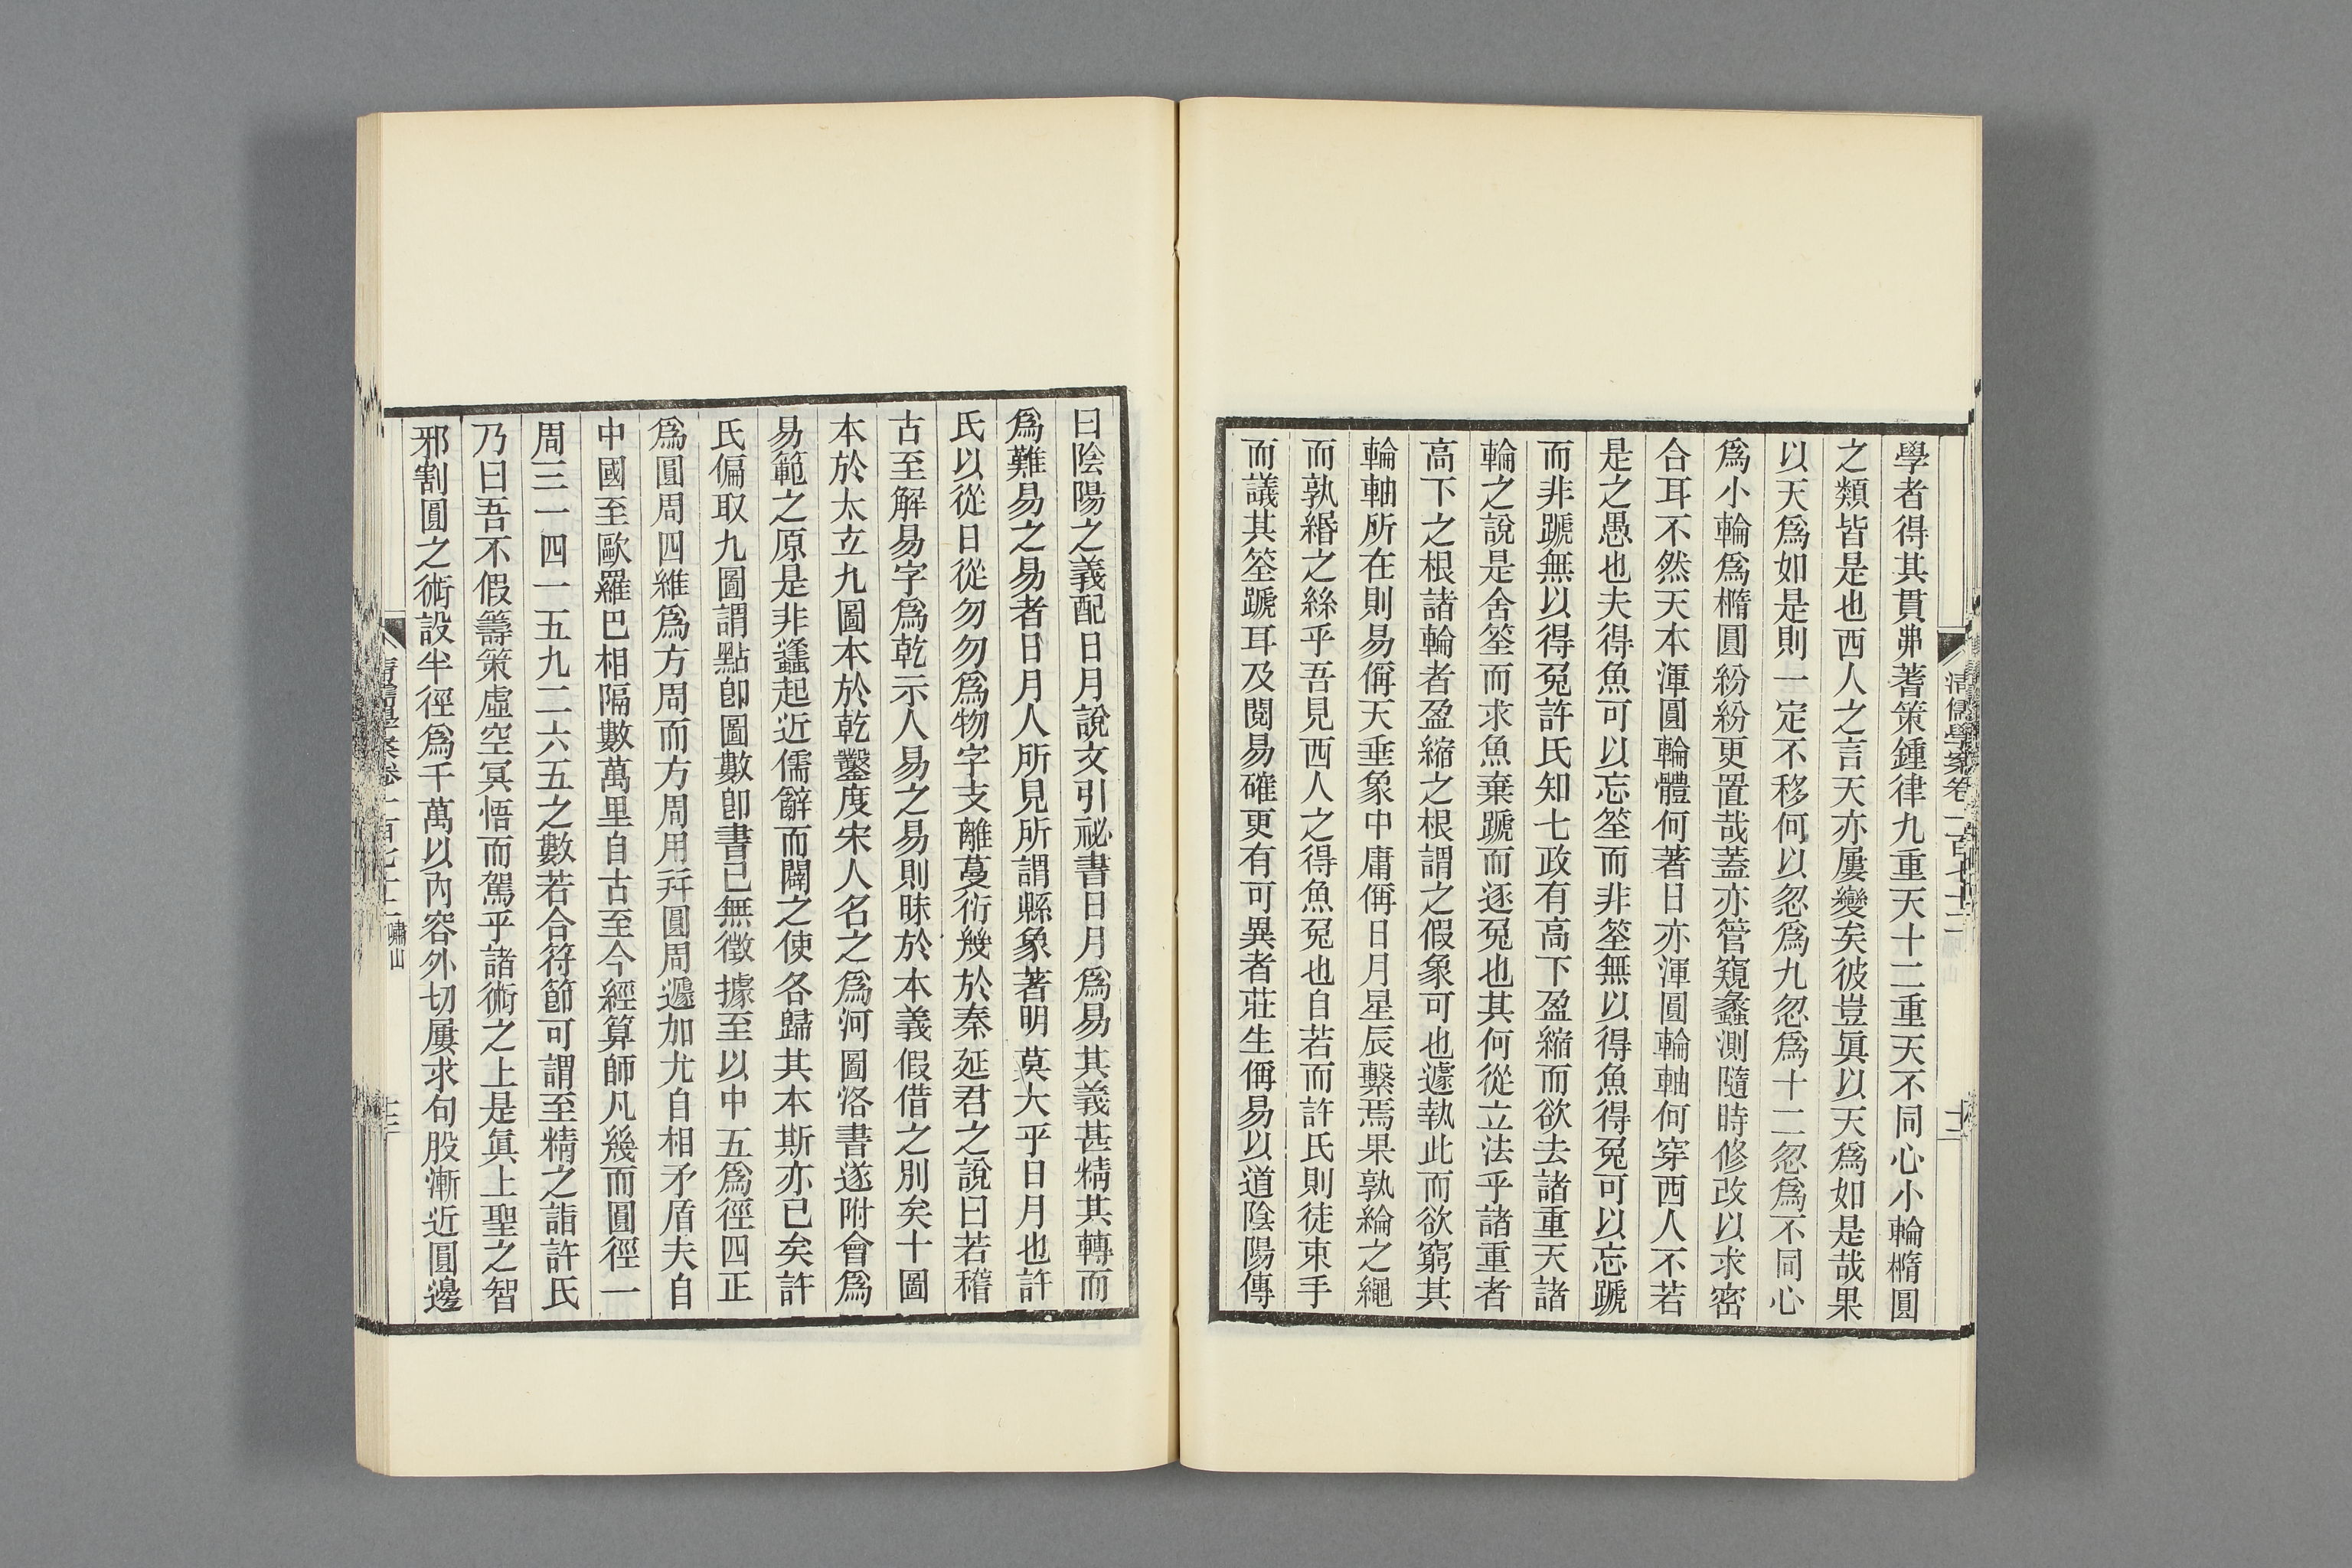 學者得其貫弗著策鍾律九重天十二重天不同心小輪橢圓
之類皆是也西人之言天亦屢變矣彼豈眞以天爲如是哉果
以天爲如是則一定不移何以忽爲九忽爲十二忽爲不同心
爲小輪爲橢圓紛紛更置哉蓋亦管窺蠡測隨時修改以求密
合耳不然天本渾圓輪體何著日亦渾圓輪軸何穿西人不若
是之愚也夫得魚可以忘筌而非筌無以得魚得兔可以忘蹏
而非蹏無以得兔許氏知七政有高下盈縮而欲去諸重天諸
輪之說是舍筌而求魚棄蹏而逐兔也其何從立法乎諸重者
高下之根諸輪者盈縮之根謂之假象可也遽執此而欲窮其
輪軸所在則易偁天垂象中庸偁日月星辰繫焉果孰綸之繩
而孰緡之絲乎吾見西人之得魚兔也自若而許氏則徒束手
而議其筌蹏耳及閱易確更有可異者莊生偁易以道陰陽傳
清儒學案卷一百七十二
十二
曰陰陽之義配日月說文引祕書日月爲易其義甚精其轉而
爲難易之易者日月人所見所謂縣象著明莫大乎日月也許
氏以從日從勿勿爲物字支離蔓衍幾於秦延君之說曰若稽
古至解易字爲乾示人易之易則昧於本義假借之別矣十圖
本於太立九圖本於乾鑿度宋人名之爲河圖洛書遂附會爲
易範之原是非蠭起近儒辭而闢之使各歸其本斯亦已矣許
氏偏取九圖謂點卽圖數卽書已無徵據至以中五爲徑四正
爲圓周四維爲方周而方周用幷圓周遞加尤自相矛盾夫自
中國至歐羅巴相隔數萬里自古至今經算師凡幾而圓徑一
周三一四一五九二六五之數若合符節可謂至精之詣許氏
乃曰吾不假籌策虛空冥悟而駕乎諸術之上是眞上聖之智
邪割圓之術設半徑爲千萬以內容外切屢求句股漸近圓邊
嘯山